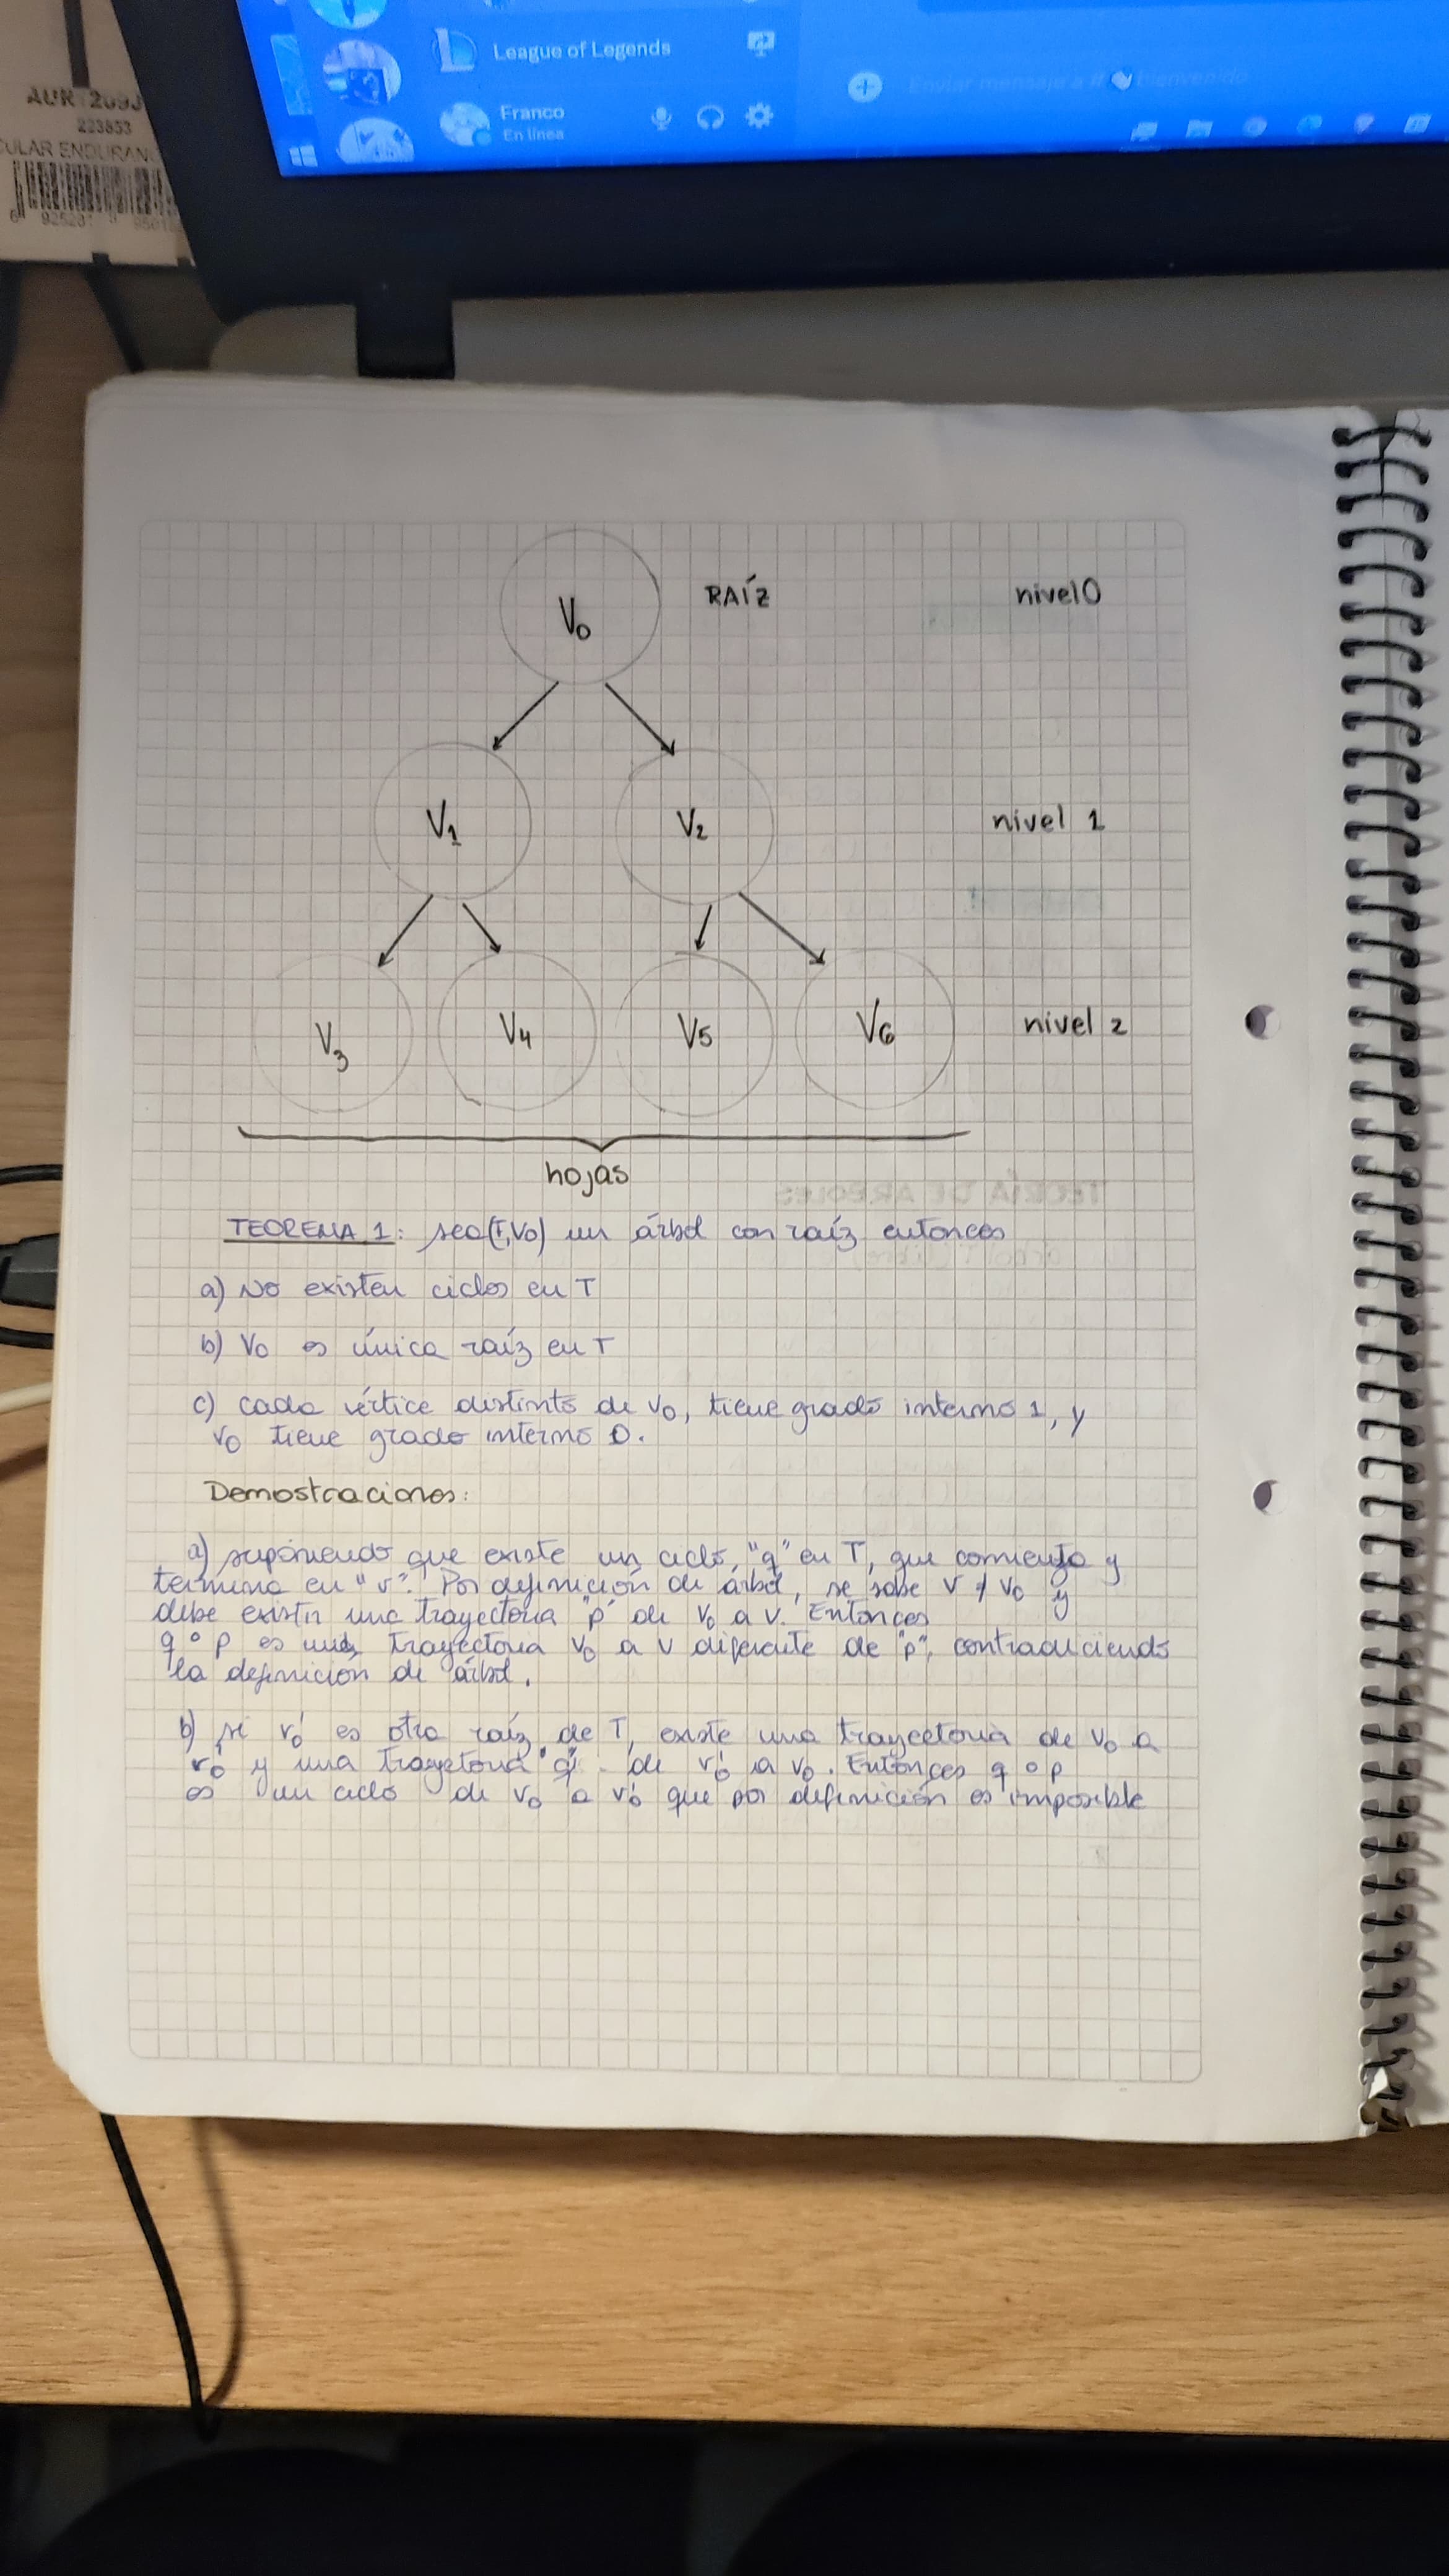 AUK 1209J
223853
CULAR ENDURANC
League of Legends
Franco
En línea
Enviar mensaje a # 👋 bienvenido
V0 RAÍZ nivel 0
V1 V2 nivel 1
V3 V4 V5 V6 nivel 2
hojas
TEORÍA DE ARBOLES
TEOREMA 1: sea (T,V0) un árbol con raíz entonces
a) No existen ciclos en T
b) V0 es única raíz en T
c) cada vértice distinto de v0, tiene grado interno 1, y
v0 tiene grado interno 0.
Demostraciones:
a) suponiendo que existe un ciclo, "q" en T, que comienza y
termina en "v". Por definición de árbol, se sabe v ≠ v0 y
debe existir una trayectoria "p" de v0 a v. Entonces
q ∘ p es una trayectoria v0 a v diferente de "p", contradiciendo
la definición de árbol.
b) si v0' es otra raíz de T, existe una trayectoria de v0 a
v0' y una trayetoria "q" de v0' a v0. Entonces q ∘ p
es un ciclo de v0 a v0' que por definición es imposible